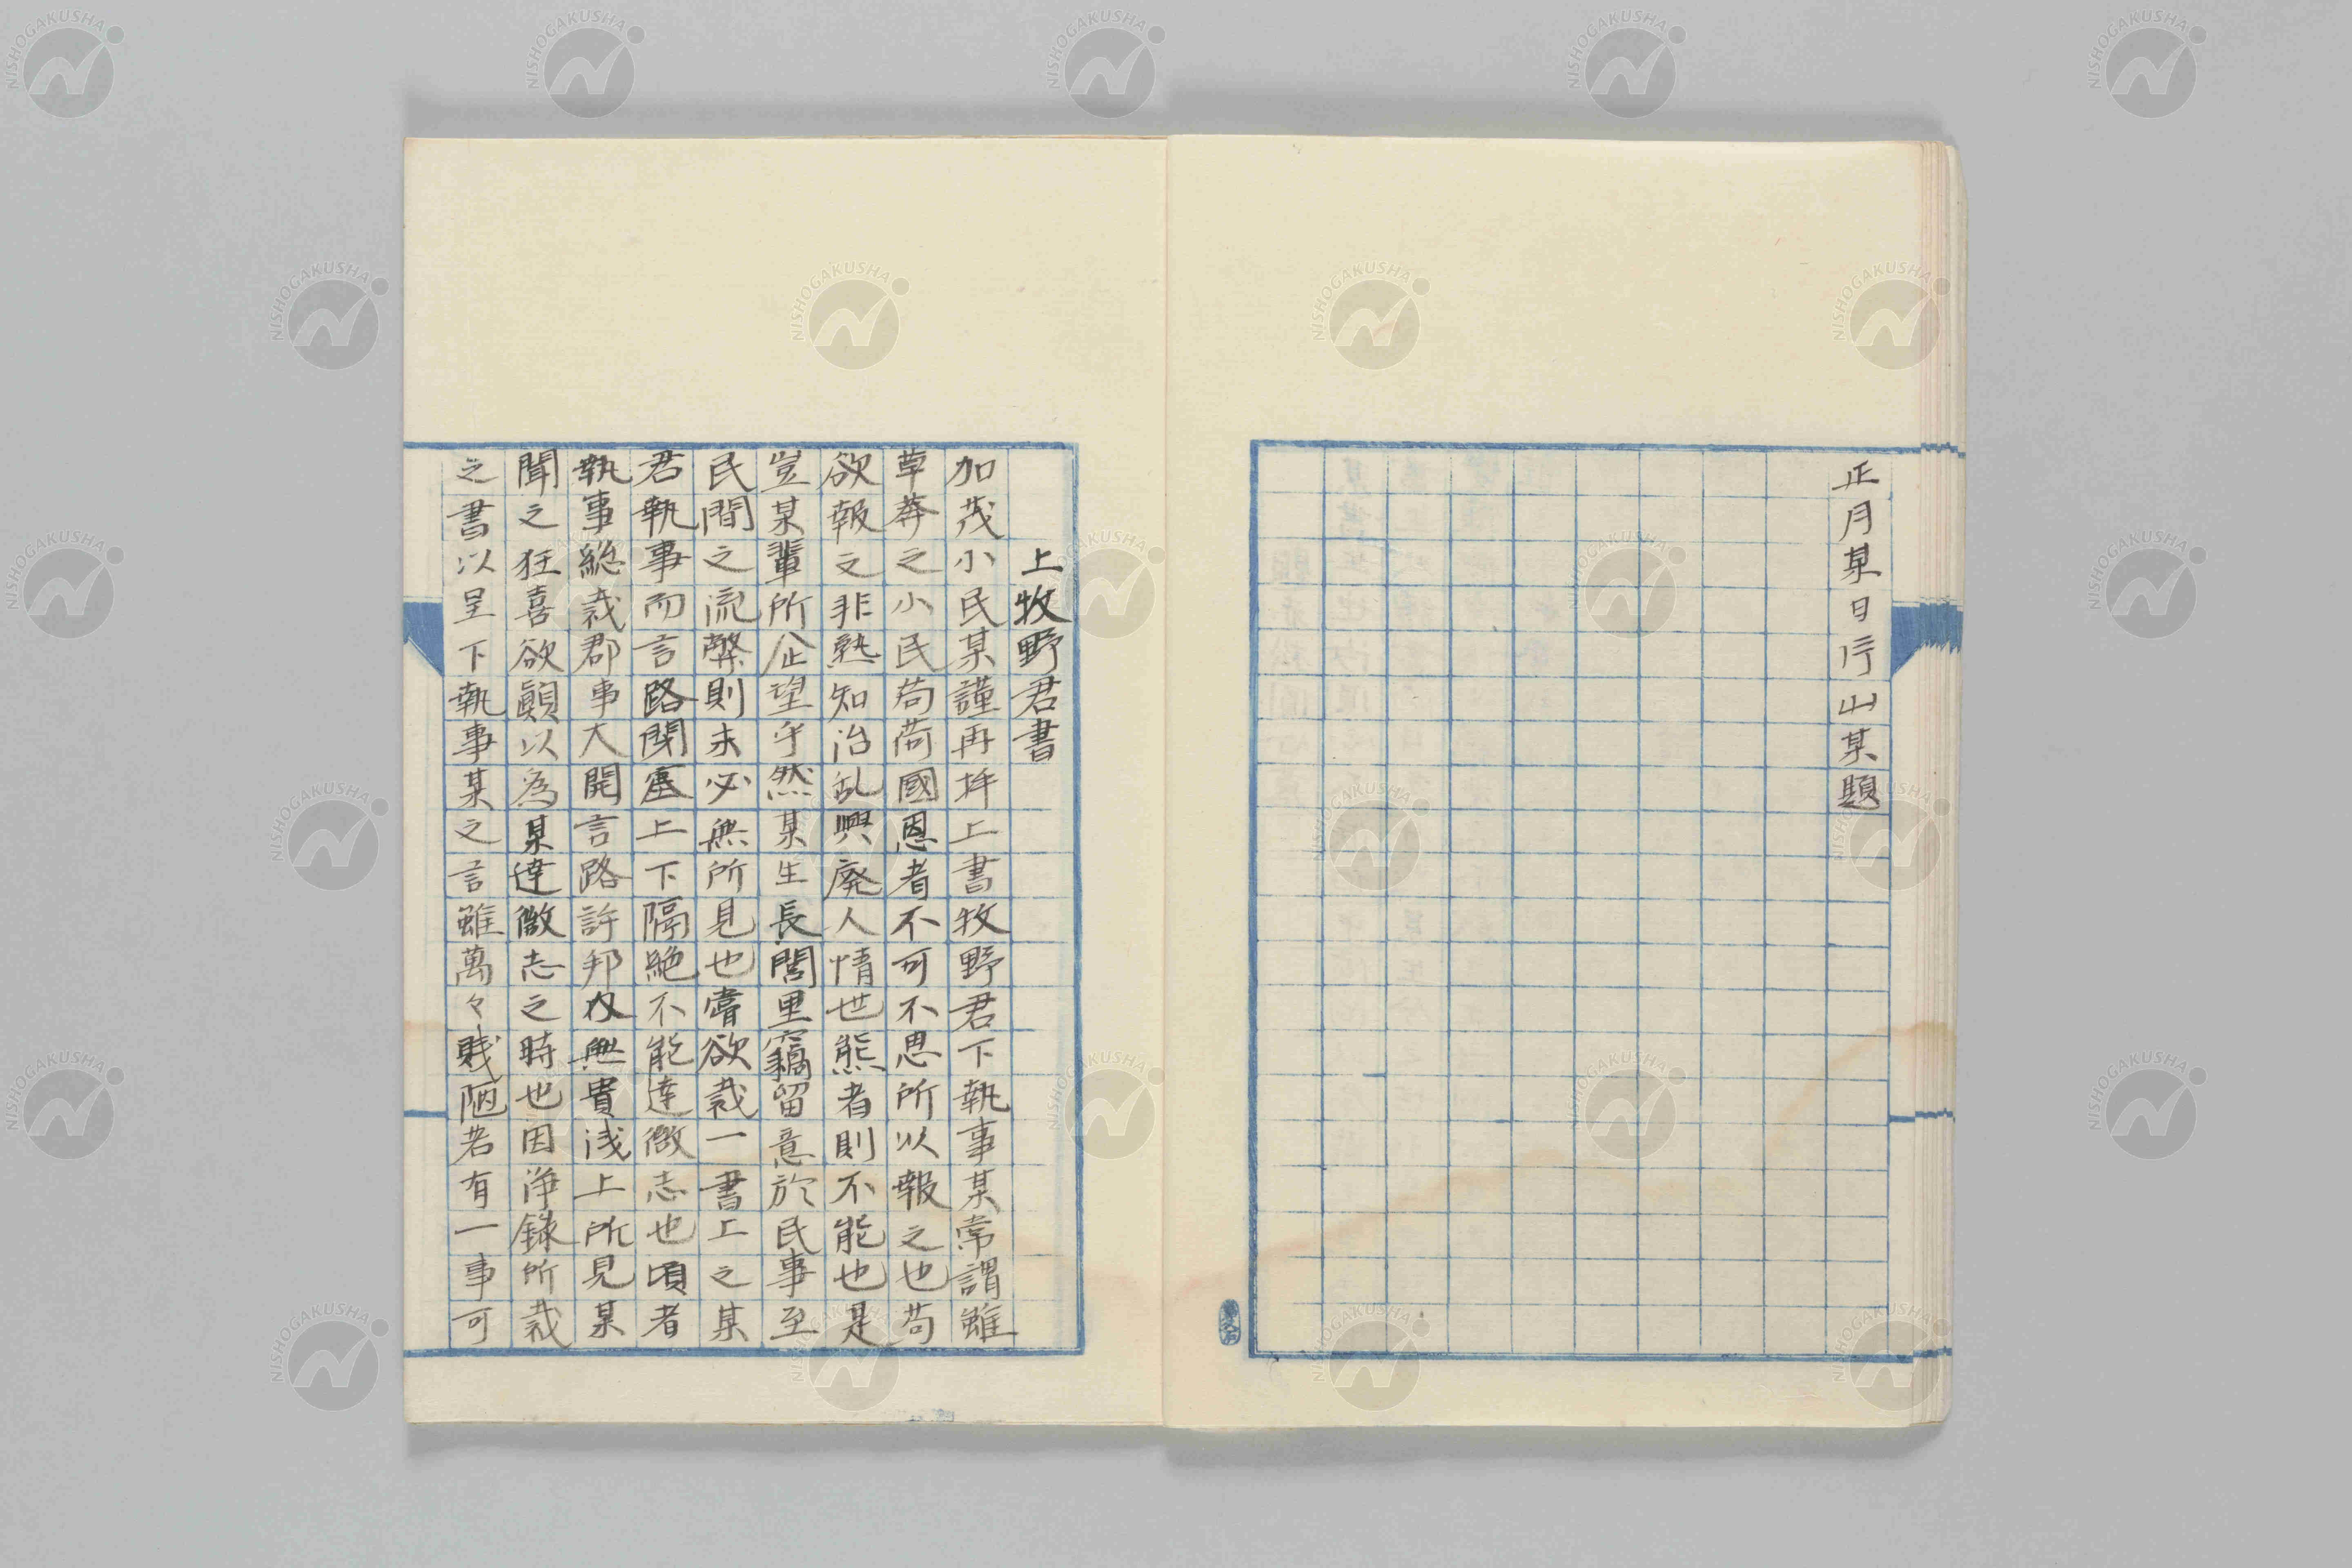 正月某日行山某題
上牧野君書
加茂小民某謹再拝上書牧野君下執事某常謂雖
草莽之小民苟荷國恩者不可不思所以報之也苟
欲報之非熟知治乱興廃人情世態者則不能也是
豈某輩所企望乎然某生長閭里竊留意於民事至
民間之流弊則未必無所見也嘗欲裁一書上之某
君執事而言路閉塞上下隔絶不能達微志也頃者
執事総裁郡事大開言路許邦内無貴浅上所見某
聞之狂喜欲顛以為某達微志之時也因浄録所裁
之書以呈下執事某之言雖萬々賎陋若有一事可
NISHOGAKUSHA